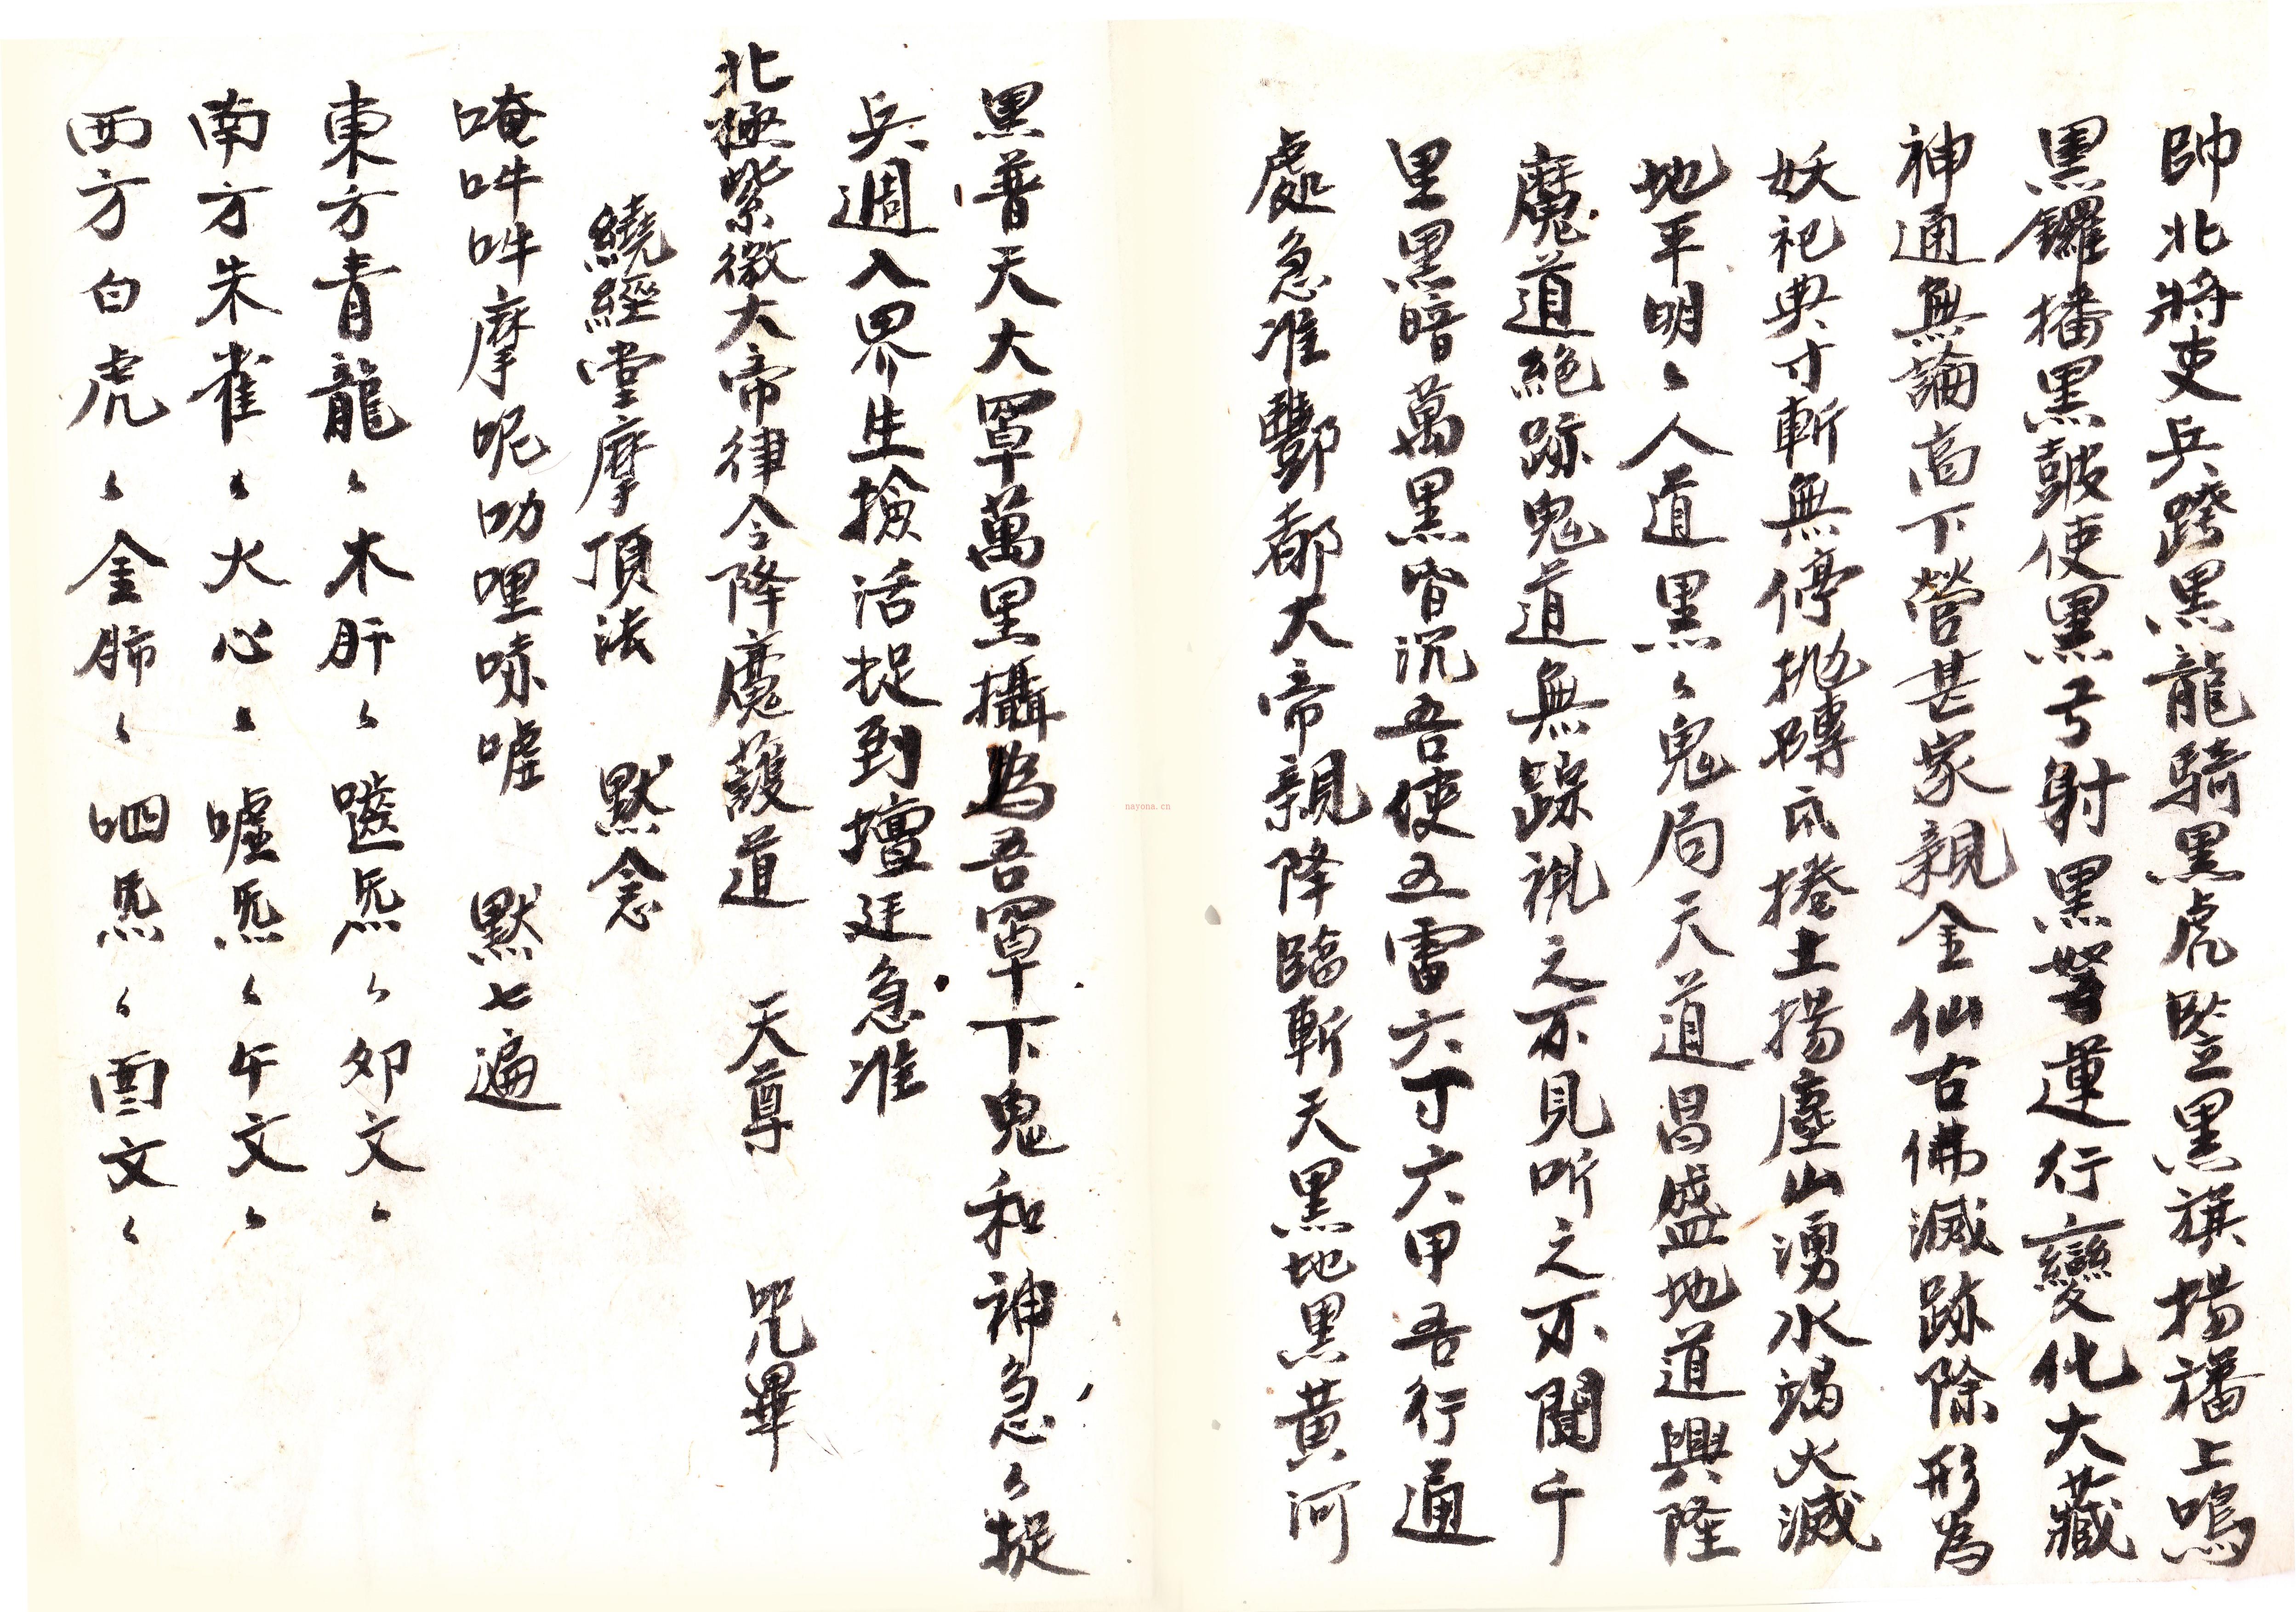 帥北將吏兵跨黑龍騎黑虎竪黑旗揚旛上鳴
黑鑼播黑皷使黑弓射黑弩運行變化大藏
神通無論高下營甚家親金仙古佛滅跡除形為
妖祀典寸斬無停拋磚瓦捲土揚塵山湧水竭火滅
地平明〻人道黑〻鬼局天道昌盛地道興隆
魔道絕跡鬼道無踪視之不見听之不聞千
里黑暗萬黑皆沉吾使五雷六丁六甲吾行通
處急准酆都大帝親降臨斬天黑地黑黃河
黑普天大罩萬里攝為吾罩下鬼和神急〻捉
兵週入界生擒活捉到壇廷急准
北極紫微大帝律令降魔護道 天尊 咒畢
繞經堂摩頂法 默念
唵吽吽摩呢叻哩㖊嘘 默七遍
東方青龍〻木肝〻嚙炁〻卯文〻
南方朱雀〻火心〻嘘炁〻午文〻
西方白虎〻金肺〻呬炁〻酉文〻
nayona.cn